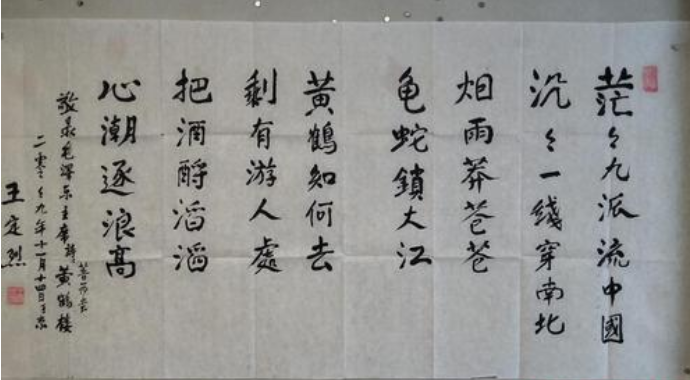 茫々九派流中國
沉々一线穿南北
烟雨莽苍苍
龟蛇鎖大江
黄鶴知何去
剩有游人處
把酒酹滔滔
心潮逐浪高
敬录毛澤东主席詩黄鶴楼
菩萨蛮
二零零九年十一月十四日于京
王定烈